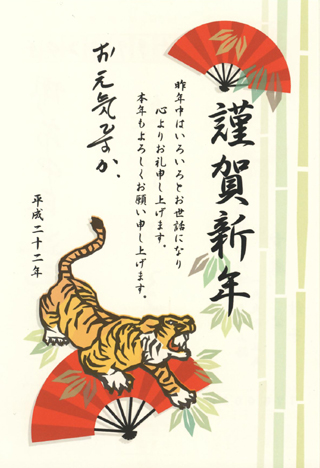 謹賀新年
昨年中はいろいろとお世話になり
心よりお礼申し上げます。
本年もよろしくお願い申し上げます。
お元気ですか、
平成二十二年